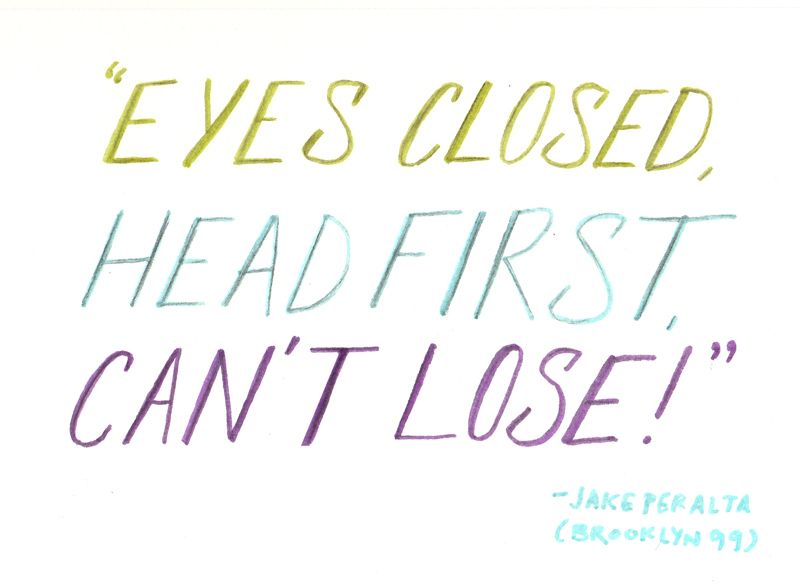 “EYES CLOSED,
HEAD FIRST,
CAN'T LOSE!”
-JAKE PERALTA
(BROOKLYN 99)